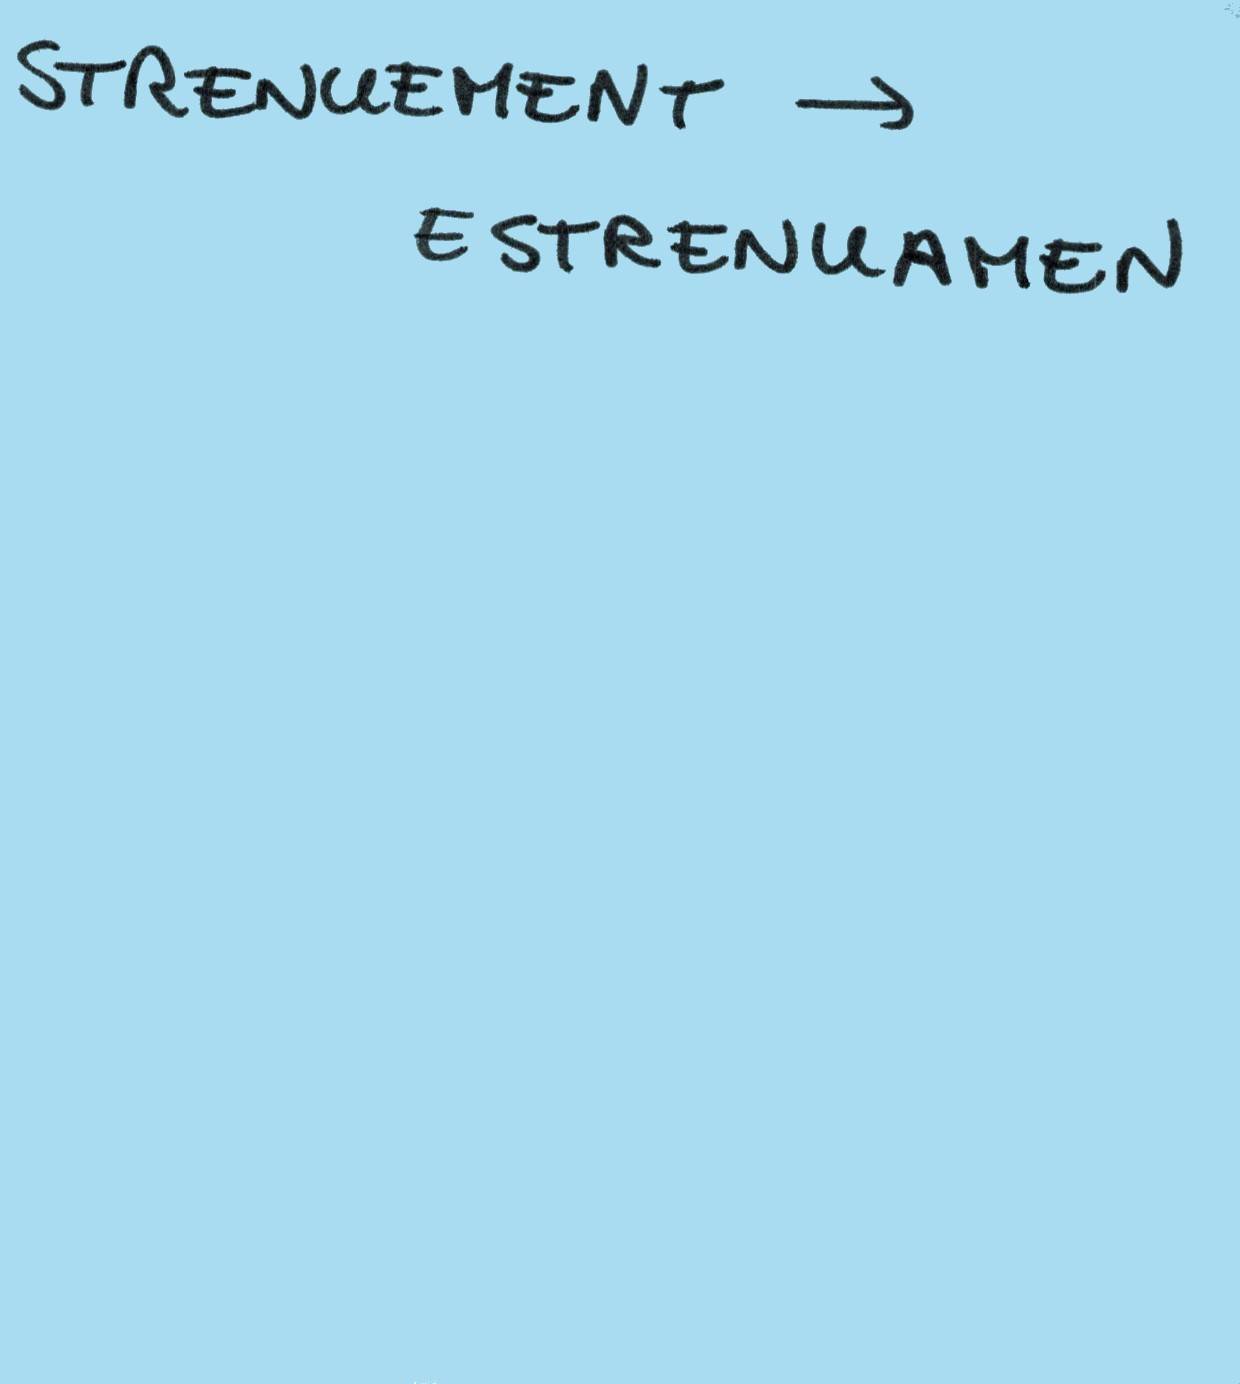 STRENUEMENT →
ESTRENUAMEN